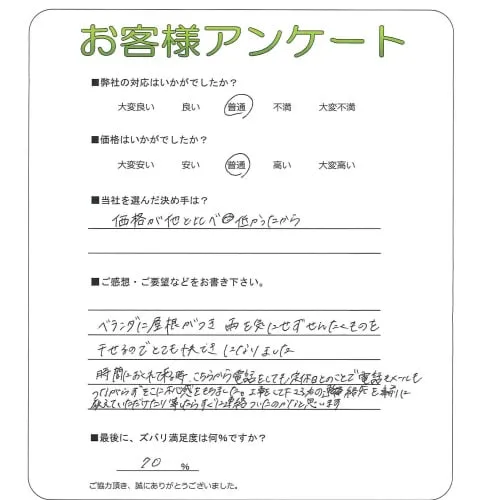 お客様アンケート
■弊社の対応はいかがでしたか？
大変良い 良い 普通 不満 大変不満
■価格はいかがでしたか？
大変安い 安い 普通 高い 大変高い
■当社を選んだ決め手は？
価格が他と比べ 低かったから
■ご感想・ご要望などをお書き下さい。
ベランダに屋根がつき 雨を気にせずせんたくものを
干せるのでとても快てきになりました
時間におくれて来る時、こちらから電話をしても定休日とのことで電話もメールも
つながらずそこに不安をもちました。工事をして下さる方の連絡先を事前に
教えていただけたり 事したらすぐに連絡ついたのかなと思います
■最後に、ズバリ満足度は何%ですか？
70 %
ご協力頂き、誠にありがとうございました。